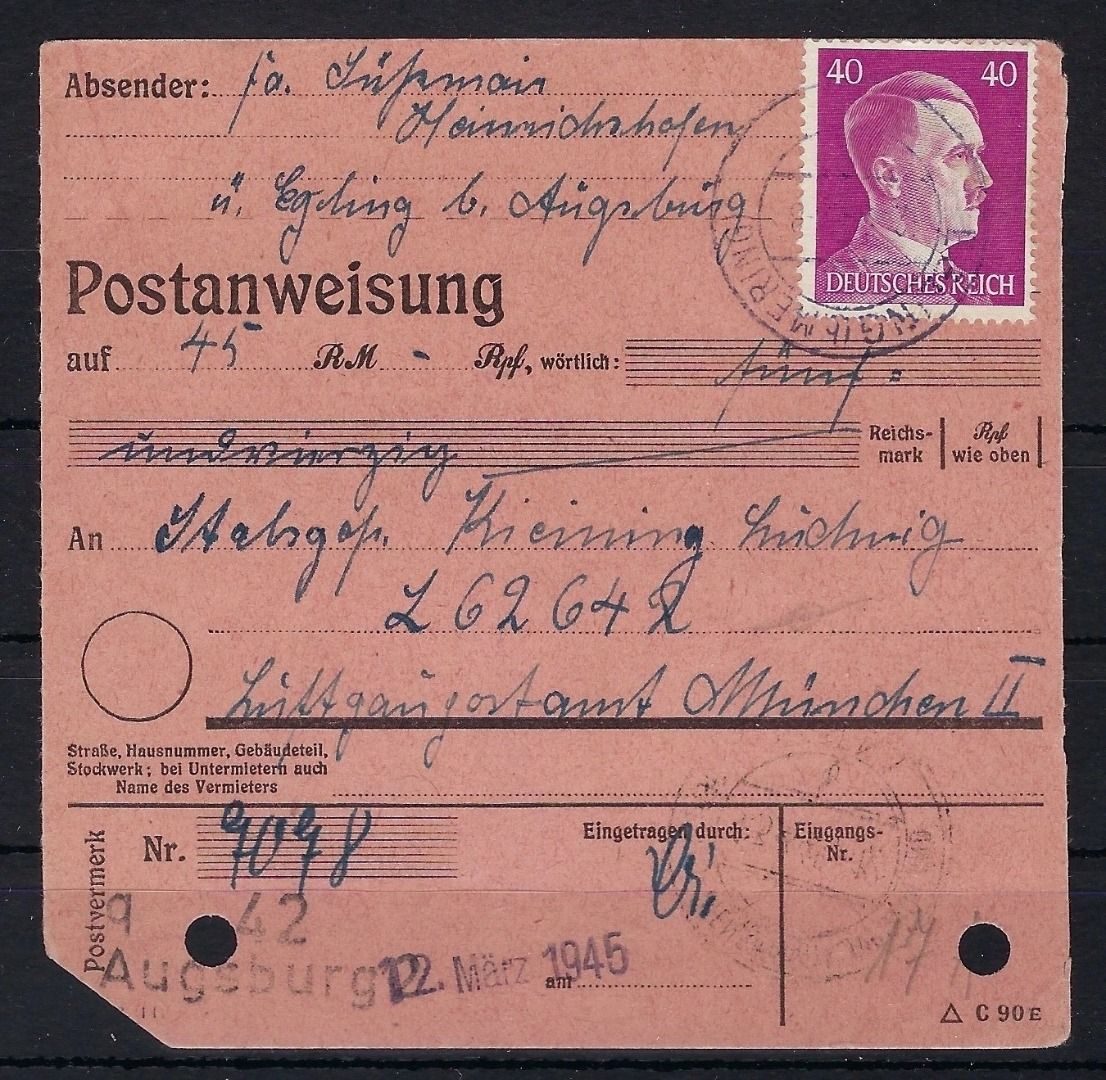 Absender: Fa. Süßmair
Heinrichshofen
ü. Egling b. Augsburg
40 40
DEUTSCHES REICH
MERING
Postanweisung
auf 45 RM - Rpf, wörtlich: fünf=
undvierzig Reichs- Rpf
mark wie oben
An Stabsgefr. Kieining Ludwig
L 62642
Luftgaupostamt München II
Straße, Hausnummer, Gebäudeteil,
Stockwerk; bei Untermietern auch
Name des Vermieters
Postvermerk
Nr. 9098
Eingetragen durch:
Eingangs-
Nr.
9 42
Augsburg 2
12. März 1945
am
17
△ C 90 E